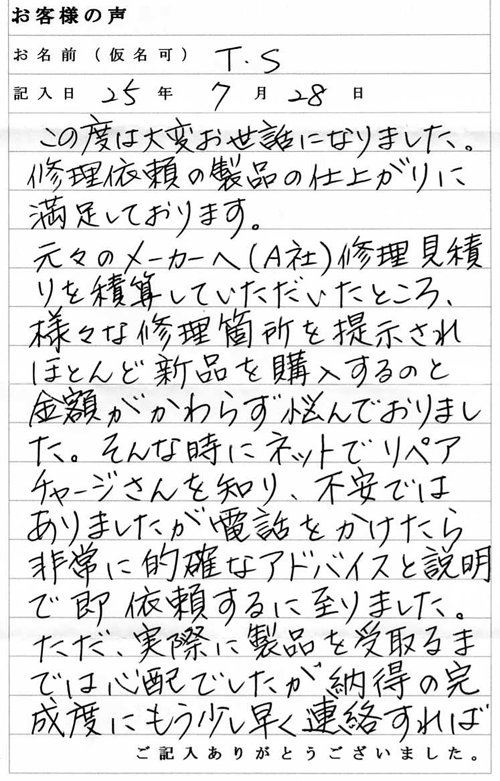 お客様の声
お名前（仮名可） T.S
記入日 25 年 7 月 28 日
この度は大変お世話になりました。
修理依頼の製品の仕上がりに
満足しております。
元々のメーカーへ(A社)修理見積
りを積算していただいたところ、
様々な修理箇所を提示され
ほとんど新品を購入するのと
金額がかわらず悩んでおりまし
た。そんな時にネットでリペア
チャージさんを知り、不安では
ありましたが電話をかけたら
非常に的確なアドバイスと説明
で即依頼するに至りました。
ただ、実際に製品を受取るま
では心配でしたが納得の完
成度にもう少し早く連絡すれば
ご記入ありがとうございました。